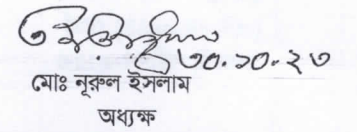 ৩০.১০.২৩
মোঃ নূরুল ইসলাম
অধ্যক্ষ